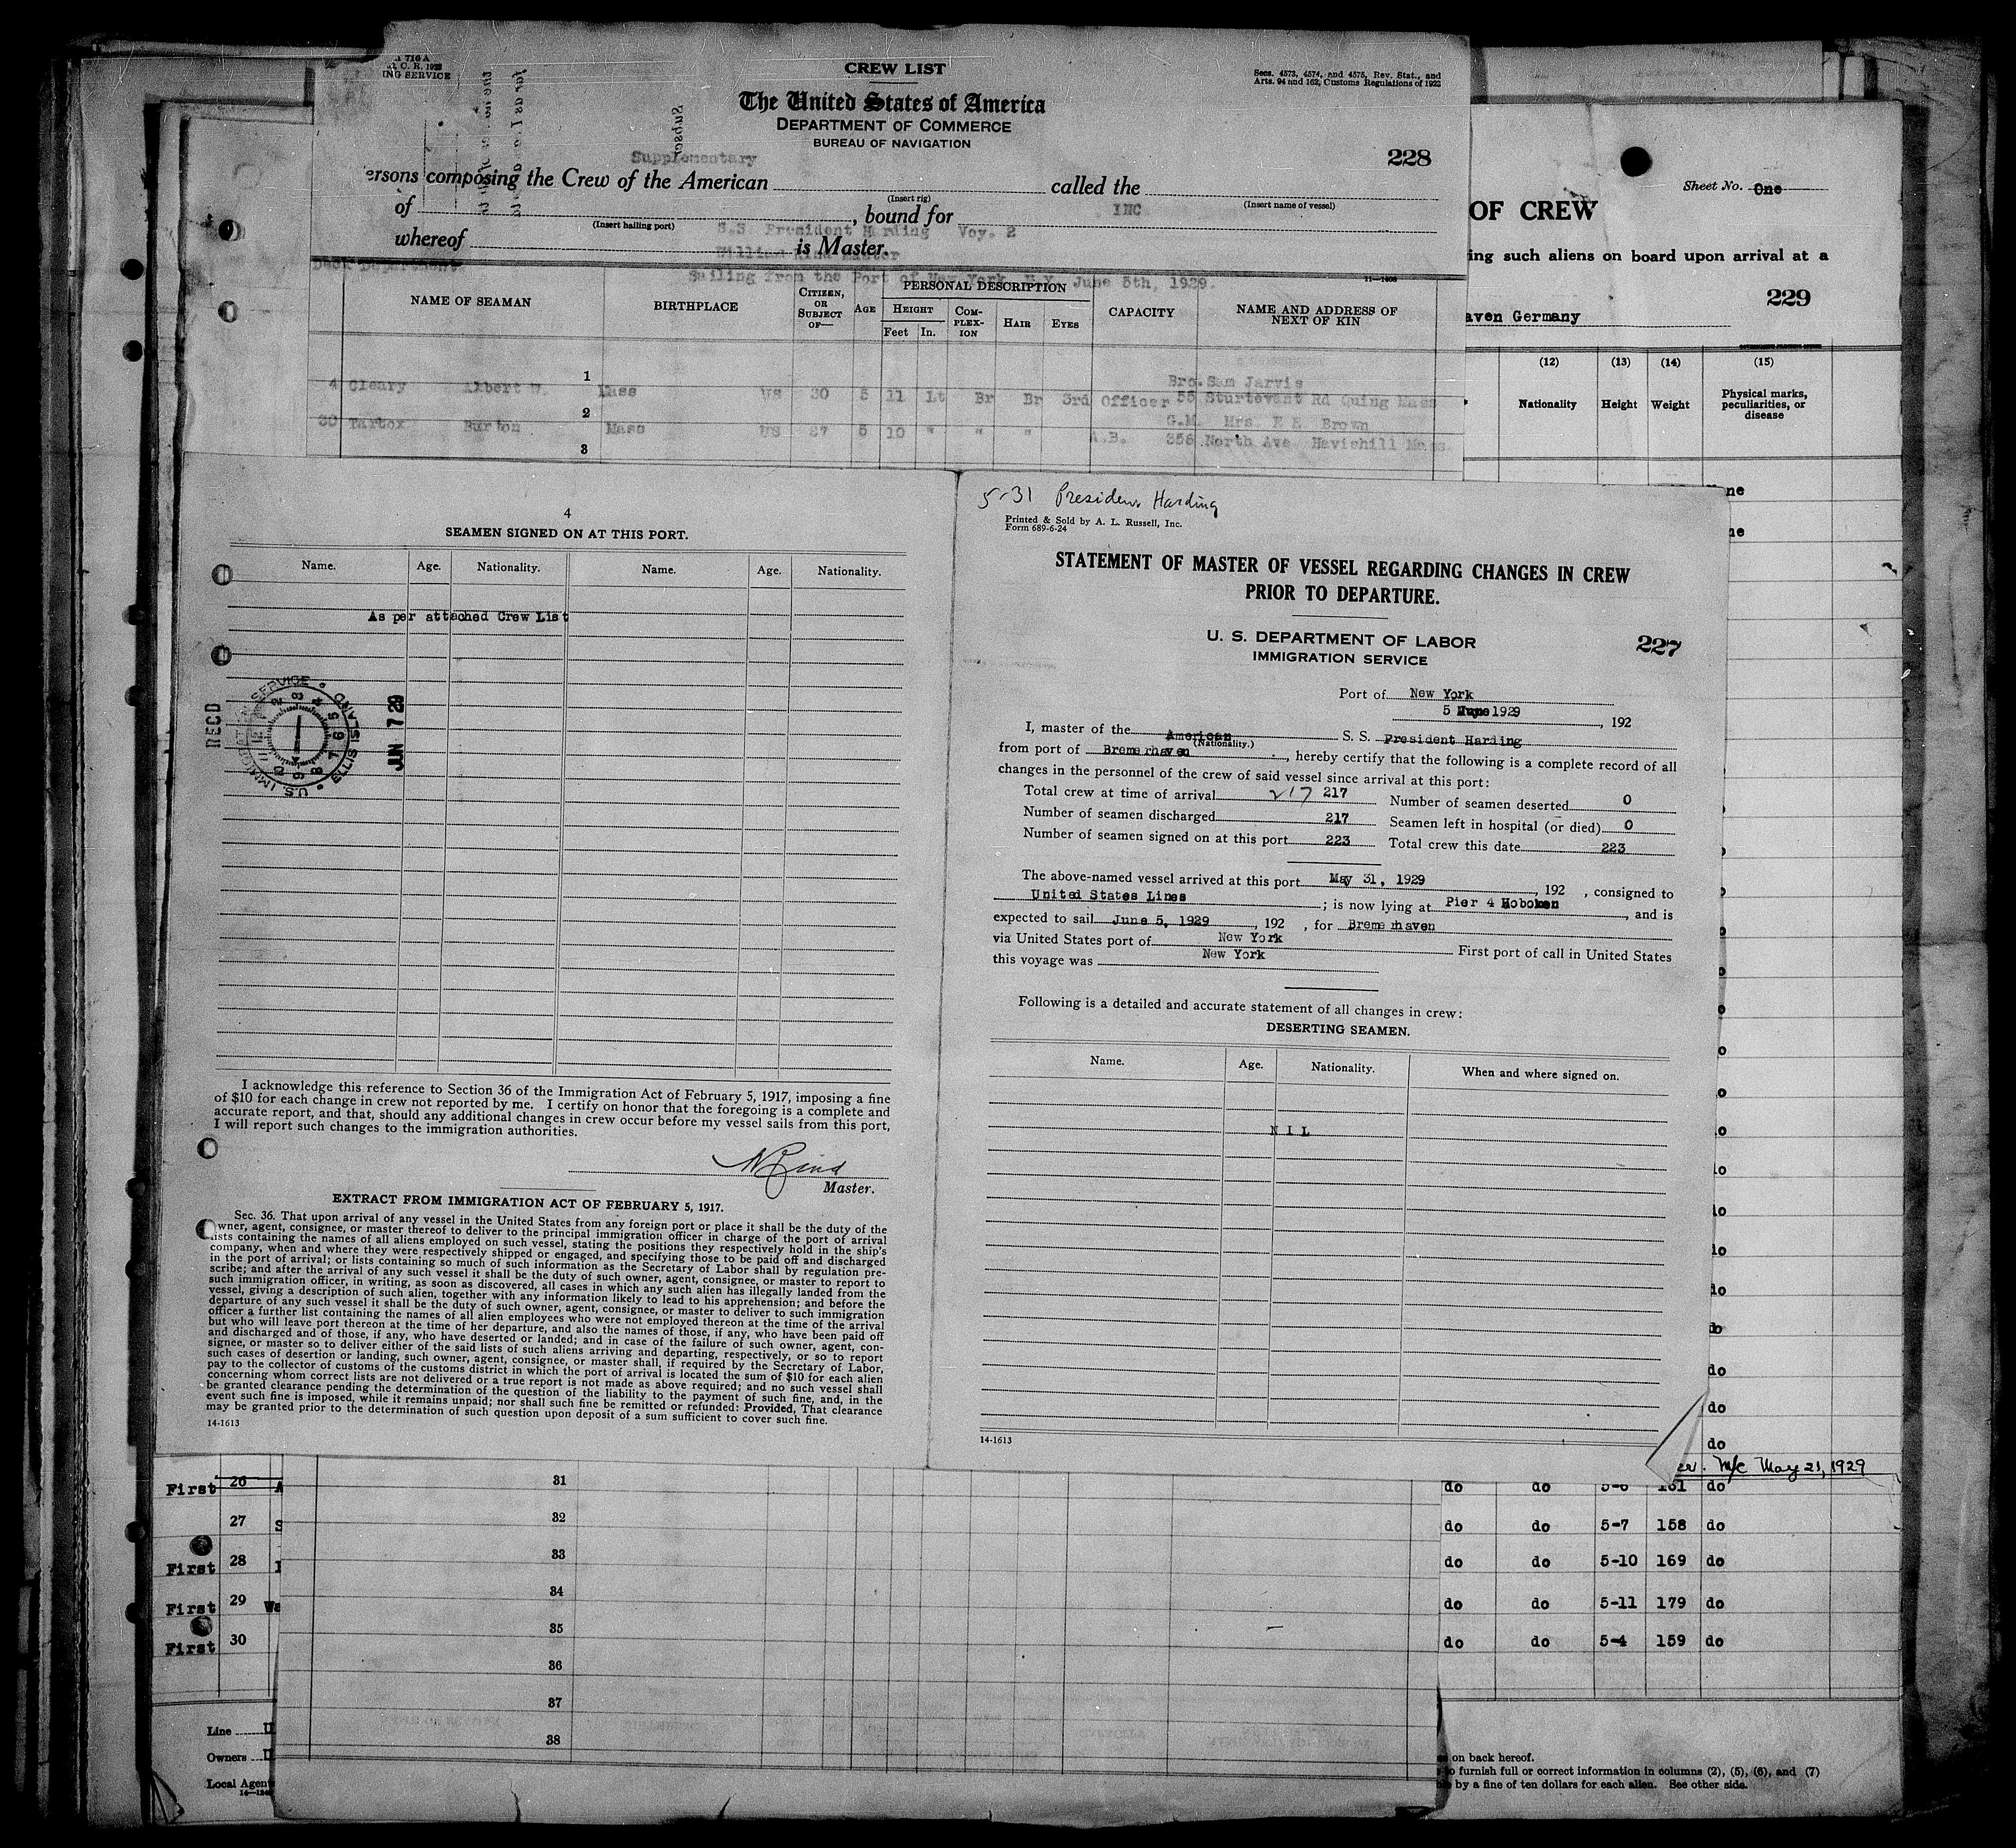 716 A
C. R. 1922
ING SERVICE
CREW LIST
Secs. 4573, 4574, and 4575, Rev. Stat., and
Arts. 94 and 162, Customs Regulations of 1922
The United States of America
DEPARTMENT OF COMMERCE
BUREAU OF NAVIGATION
228
Supplementary
ersons composing the Crew of the American called the
(Insert rig) (Insert name of vessel)
of , bound for INC
(Insert hailing port)
S.S. President Harding Voy. 2
whereof is Master.
Deck Department
Sailing from the Port of New York, N.Y. June 5th, 1929.
11-1408
NAME OF SEAMAN BIRTHPLACE CITIZEN, OR SUBJECT OF— AGE PERSONAL DESCRIPTION CAPACITY NAME AND ADDRESS OF NEXT OF KIN
HEIGHT COM-PLEX-ION HAIR EYES
Feet In.
1
Bro. Sam Jarvis
4 Cleary Albert W. Mass US 30 5 11 Lt Br Br 3rd Officer 55 Sturtevant Rd Quing Mass
2
G.M. Mrs. F E Brown
30 Tarbox Burton Mass US 27 5 10 " " " A.B. 356 North Ave Havishill Mass.
3
Sheet No. One
OF CREW
ing such aliens on board upon arrival at a
229
aven Germany
(12) (13) (14) (15)
Nationality Height Weight Physical marks, peculiarities, or disease
ne
ne
4
SEAMEN SIGNED ON AT THIS PORT.
Name. Age. Nationality. Name. Age. Nationality.
As per attached Crew List
RECD
U.S. IMMIGRATION SERVICE • ELLIS ISLAND •
JUN 7 29
I acknowledge this reference to Section 36 of the Immigration Act of February 5, 1917, imposing a fine
of $10 for each change in crew not reported by me. I certify on honor that the foregoing is a complete and
accurate report, and that, should any additional changes in crew occur before my vessel sails from this port,
I will report such changes to the immigration authorities.
Master.
EXTRACT FROM IMMIGRATION ACT OF FEBRUARY 5, 1917.
Sec. 36. That upon arrival of any vessel in the United States from any foreign port or place it shall be the duty of the
owner, agent, consignee, or master thereof to deliver to the principal immigration officer in charge of the port of arrival
lists containing the names of all aliens employed on such vessel, stating the positions they respectively hold in the ship's
company, when and where they were respectively shipped or engaged, and specifying those to be paid off and discharged
in the port of arrival; or lists containing so much of such information as the Secretary of Labor shall by regulation pre-
scribe; and after the arrival of any such vessel it shall be the duty of such owner, agent, consignee, or master to report to
such immigration officer, in writing, as soon as discovered, all cases in which any such alien has illegally landed from the
vessel, giving a description of such alien, together with any information likely to lead to his apprehension; and before the
departure of any such vessel it shall be the duty of such owner, agent, consignee, or master to deliver to such immigration
officer a further list containing the names of all alien employees who were not employed thereon at the time of the arrival
but who will leave port thereon at the time of her departure, and also the names of those, if any, who have been paid off
and discharged and of those, if any, who have deserted or landed; and in case of the failure of such owner, agent, con-
signee, or master so to deliver either of the said lists of such aliens arriving and departing, respectively, or so to report
such cases of desertion or landing, such owner, agent, consignee, or master shall, if required by the Secretary of Labor,
pay to the collector of customs of the customs district in which the port of arrival is located the sum of $10 for each alien
concerning whom correct lists are not delivered or a true report is not made as above required; and no such vessel shall
be granted clearance pending the determination of the question of the liability to the payment of such fine, and, in the
event such fine is imposed, while it remains unpaid; nor shall such fine be remitted or refunded: Provided, That clearance
may be granted prior to the determination of such question upon deposit of a sum sufficient to cover such fine.
14-1613
5-31 President Harding
Printed & Sold by A. L. Russell, Inc.
Form 689-6-24
STATEMENT OF MASTER OF VESSEL REGARDING CHANGES IN CREW
PRIOR TO DEPARTURE.
U. S. DEPARTMENT OF LABOR
IMMIGRATION SERVICE
227
Port of New York
5 June 1929 , 192
I, master of the American S. S. President Harding
(Nationality.)
from port of Bremerhaven , hereby certify that the following is a complete record of all
changes in the personnel of the crew of said vessel since arrival at this port:
Total crew at time of arrival 217 217 Number of seamen deserted 0
Number of seamen discharged 217 Seamen left in hospital (or died) 0
Number of seamen signed on at this port 223 Total crew this date 223
The above-named vessel arrived at this port May 31, 1929 , 192 , consigned to
United States Lines ; is now lying at Pier 4 Hoboken , and is
expected to sail June 5, 1929 , 192 , for Bremerhaven
via United States port of New York First port of call in United States
this voyage was New York
Following is a detailed and accurate statement of all changes in crew:
DESERTING SEAMEN.
Name. Age. Nationality. When and where signed on.
N I L
14-1613
do
do
do
do
er. M/c May 21, 1929
First 26 31 do do 5-6 161 do
27 S 32 do do 5-7 158 do
First 28 33 do do 5-10 169 do
First 29 Wa 34 do do 5-11 179 do
First 30 35 do do 5-4 159 do
36
37
38
Line U
Owners U
Local Agent
on back hereof.
to furnish full or correct information in columns (2), (5), (6), and (7)
by a fine of ten dollars for each alien. See other side.